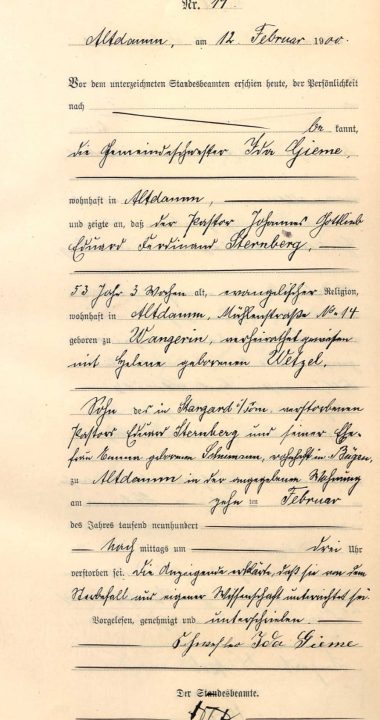 Nr. 17.
Altdamm, am 12 Februar 1900.
Vor dem unterzeichneten Standesbeamten erschien heute, der Persönlichkeit
nach
be kannt,
die Gemeindeschwester Ida Gieme,
wohnhaft in Altdamm,
und zeigte an, daß der Pastor Johannes Gottlieb
Eduard Ferdinand Sternberg,
53 Jahr 3 Wochen alt, evangelischer Religion,
wohnhaft in Altdamm, Mühlenstraße No 14
geboren zu Wangerin, verheirathet gewesen
mit Helene geborenen Wetzel.
Sohn des in Stargard i/Pom. verstorbenen
Pastors Eduard Sternberg und seiner Ehe-
frau geborenen wohnhaft in
zu Altdamm in der angegebenen Wohnung
am zehn ten Februar
des Jahres tausend neunhundert
Nach mittags um drei Uhr
verstorben sei. Die Anzeigende erklärte, daß sie von dem
Sterbefall aus eigener Wissenschaft unterrichtet sei.
Vorgelesen, genehmigt und unterschrieben.
Schwester Ida Gieme
Der Standesbeamte.